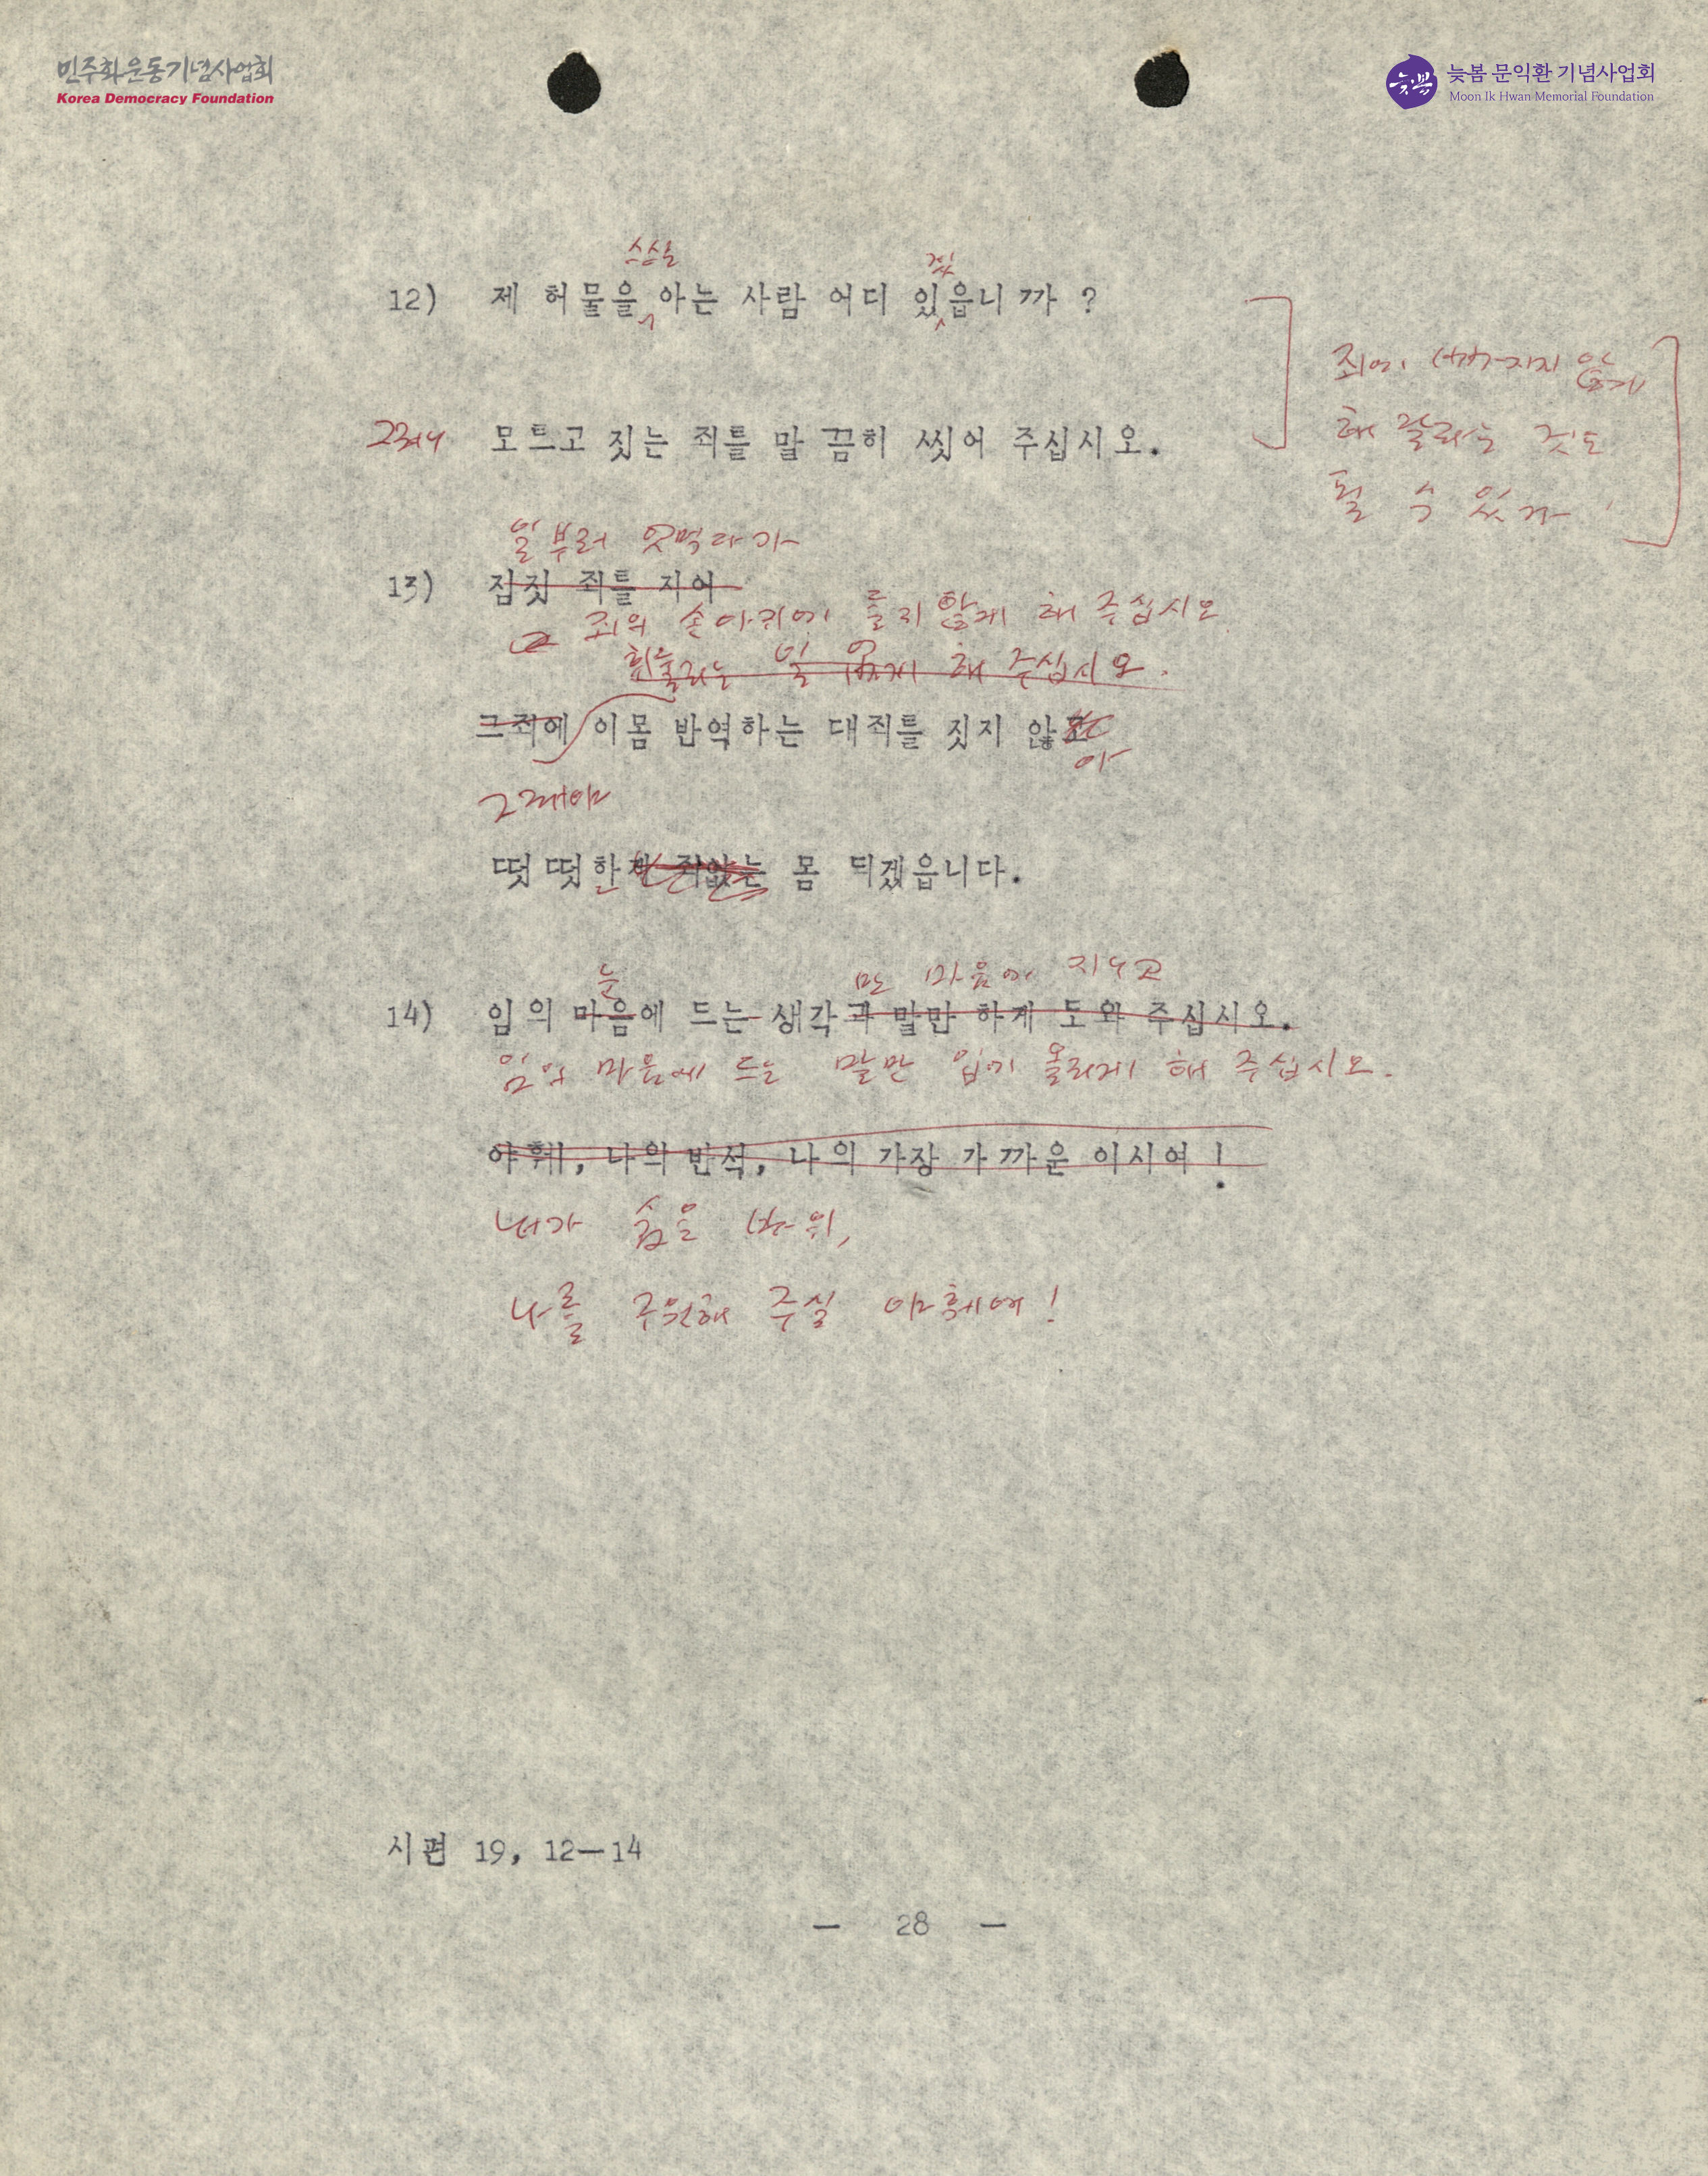 민주화운동기념사업회
Korea Democracy Foundation
늦봄
늦봄 문익환 기념사업회
Moon Ik Hwan Memorial Foundation
스스로
겠
12) 제 허물을 아는 사람 어디 있읍니까 ?
죄에 빠지지 않게
그러니 모르고 짓는 죄를 말끔히 씻어 주십시오.
해 달라는 것도
될 수 있다
일부러 엇먹다가
13) 짐짓 죄를 지어
죄의 손아귀에 들지 않게 해 주십시오.
휘둘리는 일 없게 해 주십시오.
그 죄에 이몸 반역하는 대죄를 짓지 않고
아
그래야
떳떳한 죄없는 몸 되겠읍니다.
눈
만 마음에 지니고
14) 임의 마음에 드는 생각과 말만 하게 도와 주십시오.
임의 마음에 드는 말만 입에 올리게 해 주십시오.
야훼, 나의 반석, 나의 가장 가까운 이시여 !
내가 숨을 바위,
나를 구원해 주실 야훼여 !
시편 19, 12—14
— 28 —